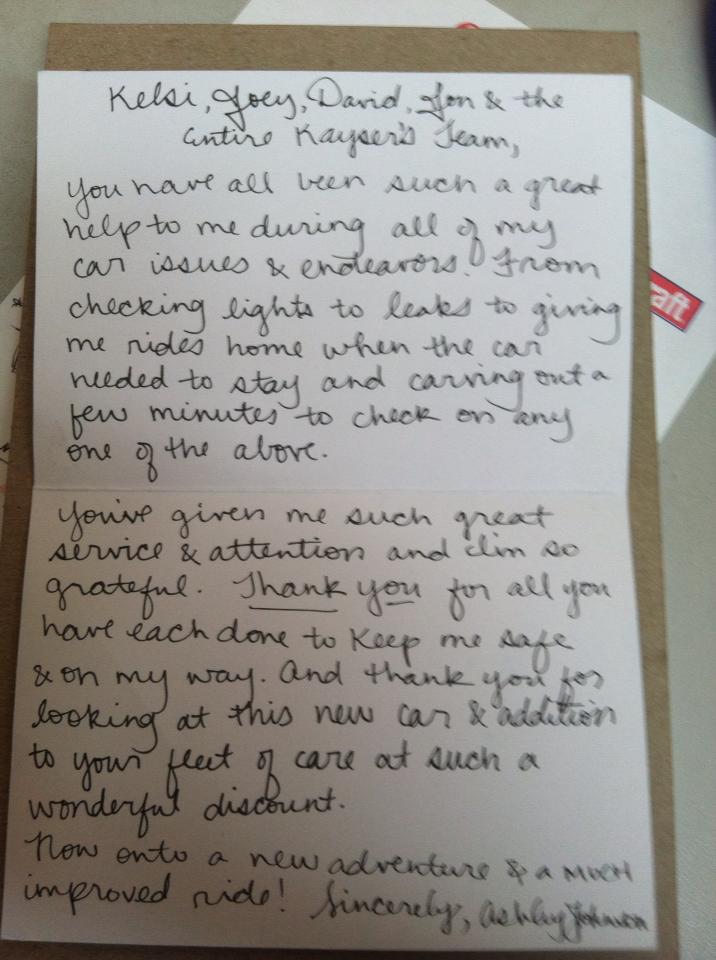 Kelsi, Joey, David, Jon & the
entire Kayser's Team,
You have all been such a great
help to me during all of my
car issues & endeavors! From
checking lights to leaks to giving
me rides home when the car
needed to stay and carving out a
few minutes to check on any
one of the above.
You've given me such great
service & attention and I'm so
grateful. Thank you for all you
have each done to keep me safe
& on my way. And thank you for
looking at this new car & addition
to your fleet of care at such a
wonderful discount.
Now onto a new adventure & a MUCH
improved ride! Sincerely, Ashley Johnson
aft